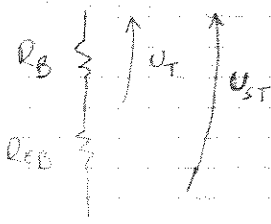 R_B U_T
U_ST
R_EB